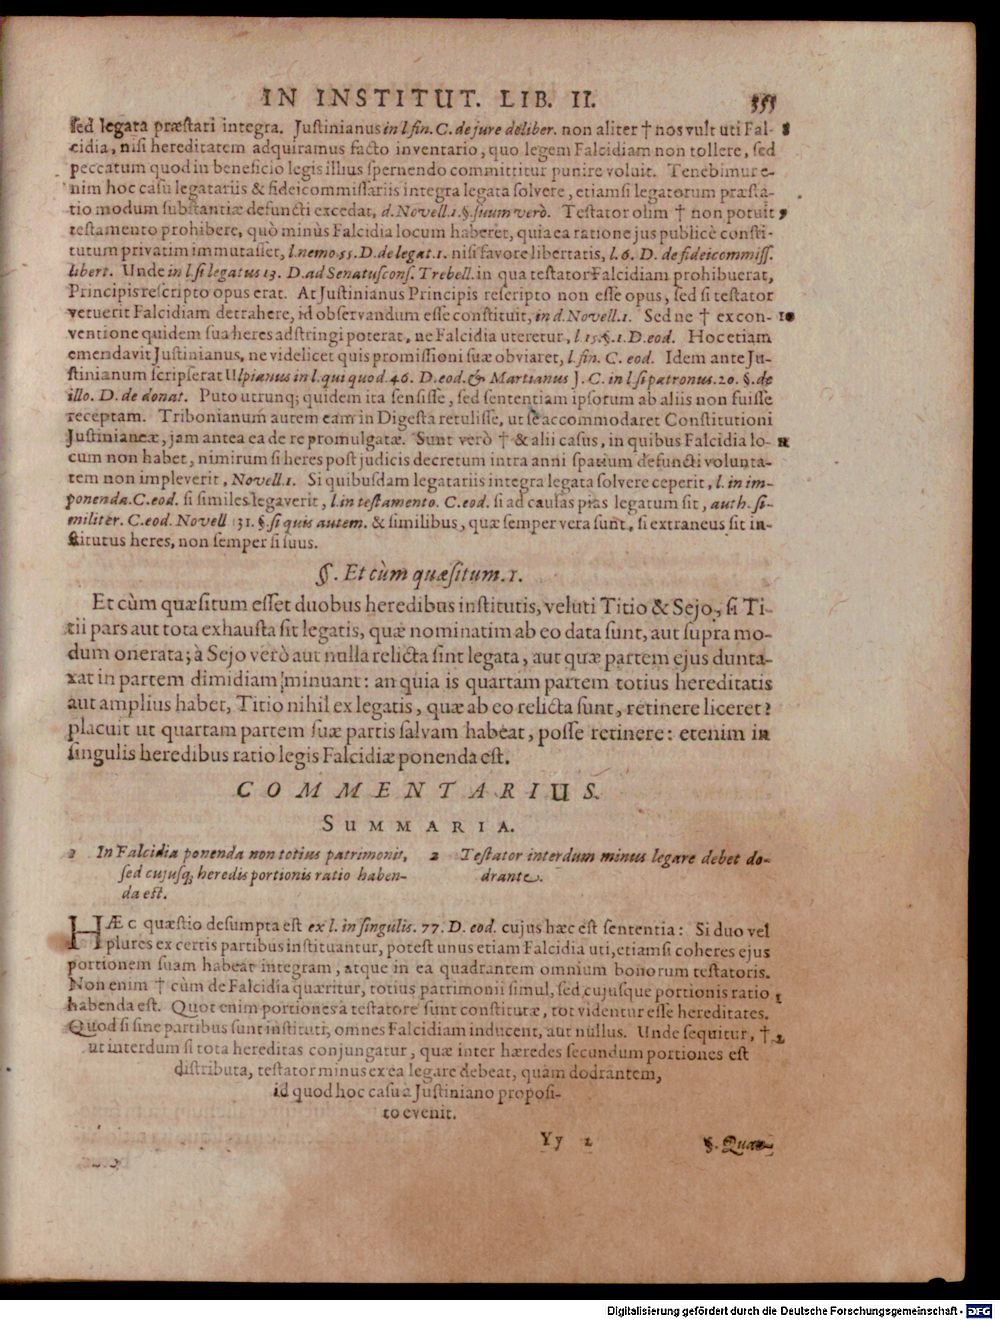 IN INSTITUT. LIB. II. 355
sed legata præstari integra. Justinianus in l. fin. C. de jure deliber. non aliter † nos vult uti Fal- 8
cidia, nisi hereditatem adquiramus facto inventario, quo legem Falcidiam non tollere, sed
peccatum quod in beneficio legis illius spernendo committitur punire voluit. Tenebimur e-
nim hoc casu legatariis & fideicommissariis integra legata solvere, etiamsi legatorum præsta-
tio modum substantiæ defuncti excedat, d. Novell. 1. §. suum verò. Testator olim † non potuit 9
testamento prohibere, quò minùs Falcidia locum haberet, quia ea ratione jus publicè consti-
tutum privatim immutasset, l. nemo 55. D. de legat. 1. nisi favore libertatis, l. 6. D. de fideicommiss.
libert. Unde in l. si legatus 13. D. ad Senatusconf. Trebell. in qua testator Falcidiam prohibuerat,
Principis rescripto opus erat. At Justinianus Principis rescripto non esse opus, sed si testator
vetuerit Falcidiam detrahere, id observandum esse constituit, in d. Novell. 1. Sed ne † ex con- 10
ventione quidem sua heres adstringi poterat, ne Falcidia uteretur, l. 15. §. 1. D. eod. Hoc etiam
emendavit Justinianus, ne videlicet quis promissioni suæ obviaret, l. fin. C. eod. Idem ante Ju-
stinianum scripserat Ulpianus in l. qui quod. 46. D. eod. & Martianus J. C. in l. si patronus. 20. §. de
illo. D. de donat. Puto utrunq; quidem ita sensisse, sed sententiam ipsorum ab aliis non fuisse
receptam. Tribonianum autem eam in Digesta retulisse, ut se accommodaret Constitutioni
Justinianeæ, jam antea ea de re promulgatæ. Sunt verò † & alii casus, in quibus Falcidia lo- 11
cum non habet, nimirum si heres post judicis decretum intra anni spatium defuncti volunta-
tem non impleverit, Novell. 1. Si quibusdam legatariis integra legata solvere ceperit, l. in im-
ponenda. C. eod. si similes legaverit, l. in testamento. C. eod. si ad causas pias legatum sit, auth. si-
militer. C. eod. Novell 131. §. si quis autem. & similibus, quæ semper vera sunt, si extraneus sit in-
stitutus heres, non semper si suus.
§. Et cùm quæsitum. 1.
Et cùm quæsitum esset duobus heredibus institutis, veluti Titio & Sejo, si Ti-
tii pars aut tota exhausta sit legatis, quæ nominatim ab eo data sunt, aut supra mo-
dum onerata; à Sejo verò aut nulla relicta sint legata, aut quæ partem ejus dunta-
xat in partem dimidiam minuant: an quia is quartam partem totius hereditatis
aut amplius habet, Titio nihil ex legatis, quæ ab eo relicta sunt, retinere liceret?
placuit ut quartam partem suæ partis salvam habeat, posse retinere: etenim in
singulis heredibus ratio legis Falcidiæ ponenda est.
COMMENTARIUS.
SUMMARIA.
1 In Falcidia ponenda non totius patrimonii,
sed cujusq; heredis portionis ratio haben-
da est.
2 Testator interdum minus legare debet do-
drante.
HÆc quæstio desumpta est ex l. in singulis. 77. D. eod. cujus hæc est sententia: Si duo vel
plures ex certis partibus instituantur, potest unus etiam Falcidia uti, etiamsi coheres ejus
portionem suam habeat integram, atque in ea quadrantem omnium bonorum testatoris.
Non enim † cùm de Falcidia quæritur, totius patrimonii simul, sed cujusque portionis ratio 1
habenda est. Quot enim portiones à testatore sunt constitutæ, tot videntur esse hereditates.
Quod si sine partibus sunt instituti, omnes Falcidiam inducent, aut nullus. Unde sequitur, † 2
ut interdum si tota hereditas conjungatur, quæ inter hæredes secundum portiones est
distributa, testator minus ex ea legare debeat, quàm dodrantem,
id quod hoc casu à Justiniano proposi-
to evenit.
Yy 2 §. Quan-
Digitalisierung gefördert durch die Deutsche Forschungsgemeinschaft - DFG